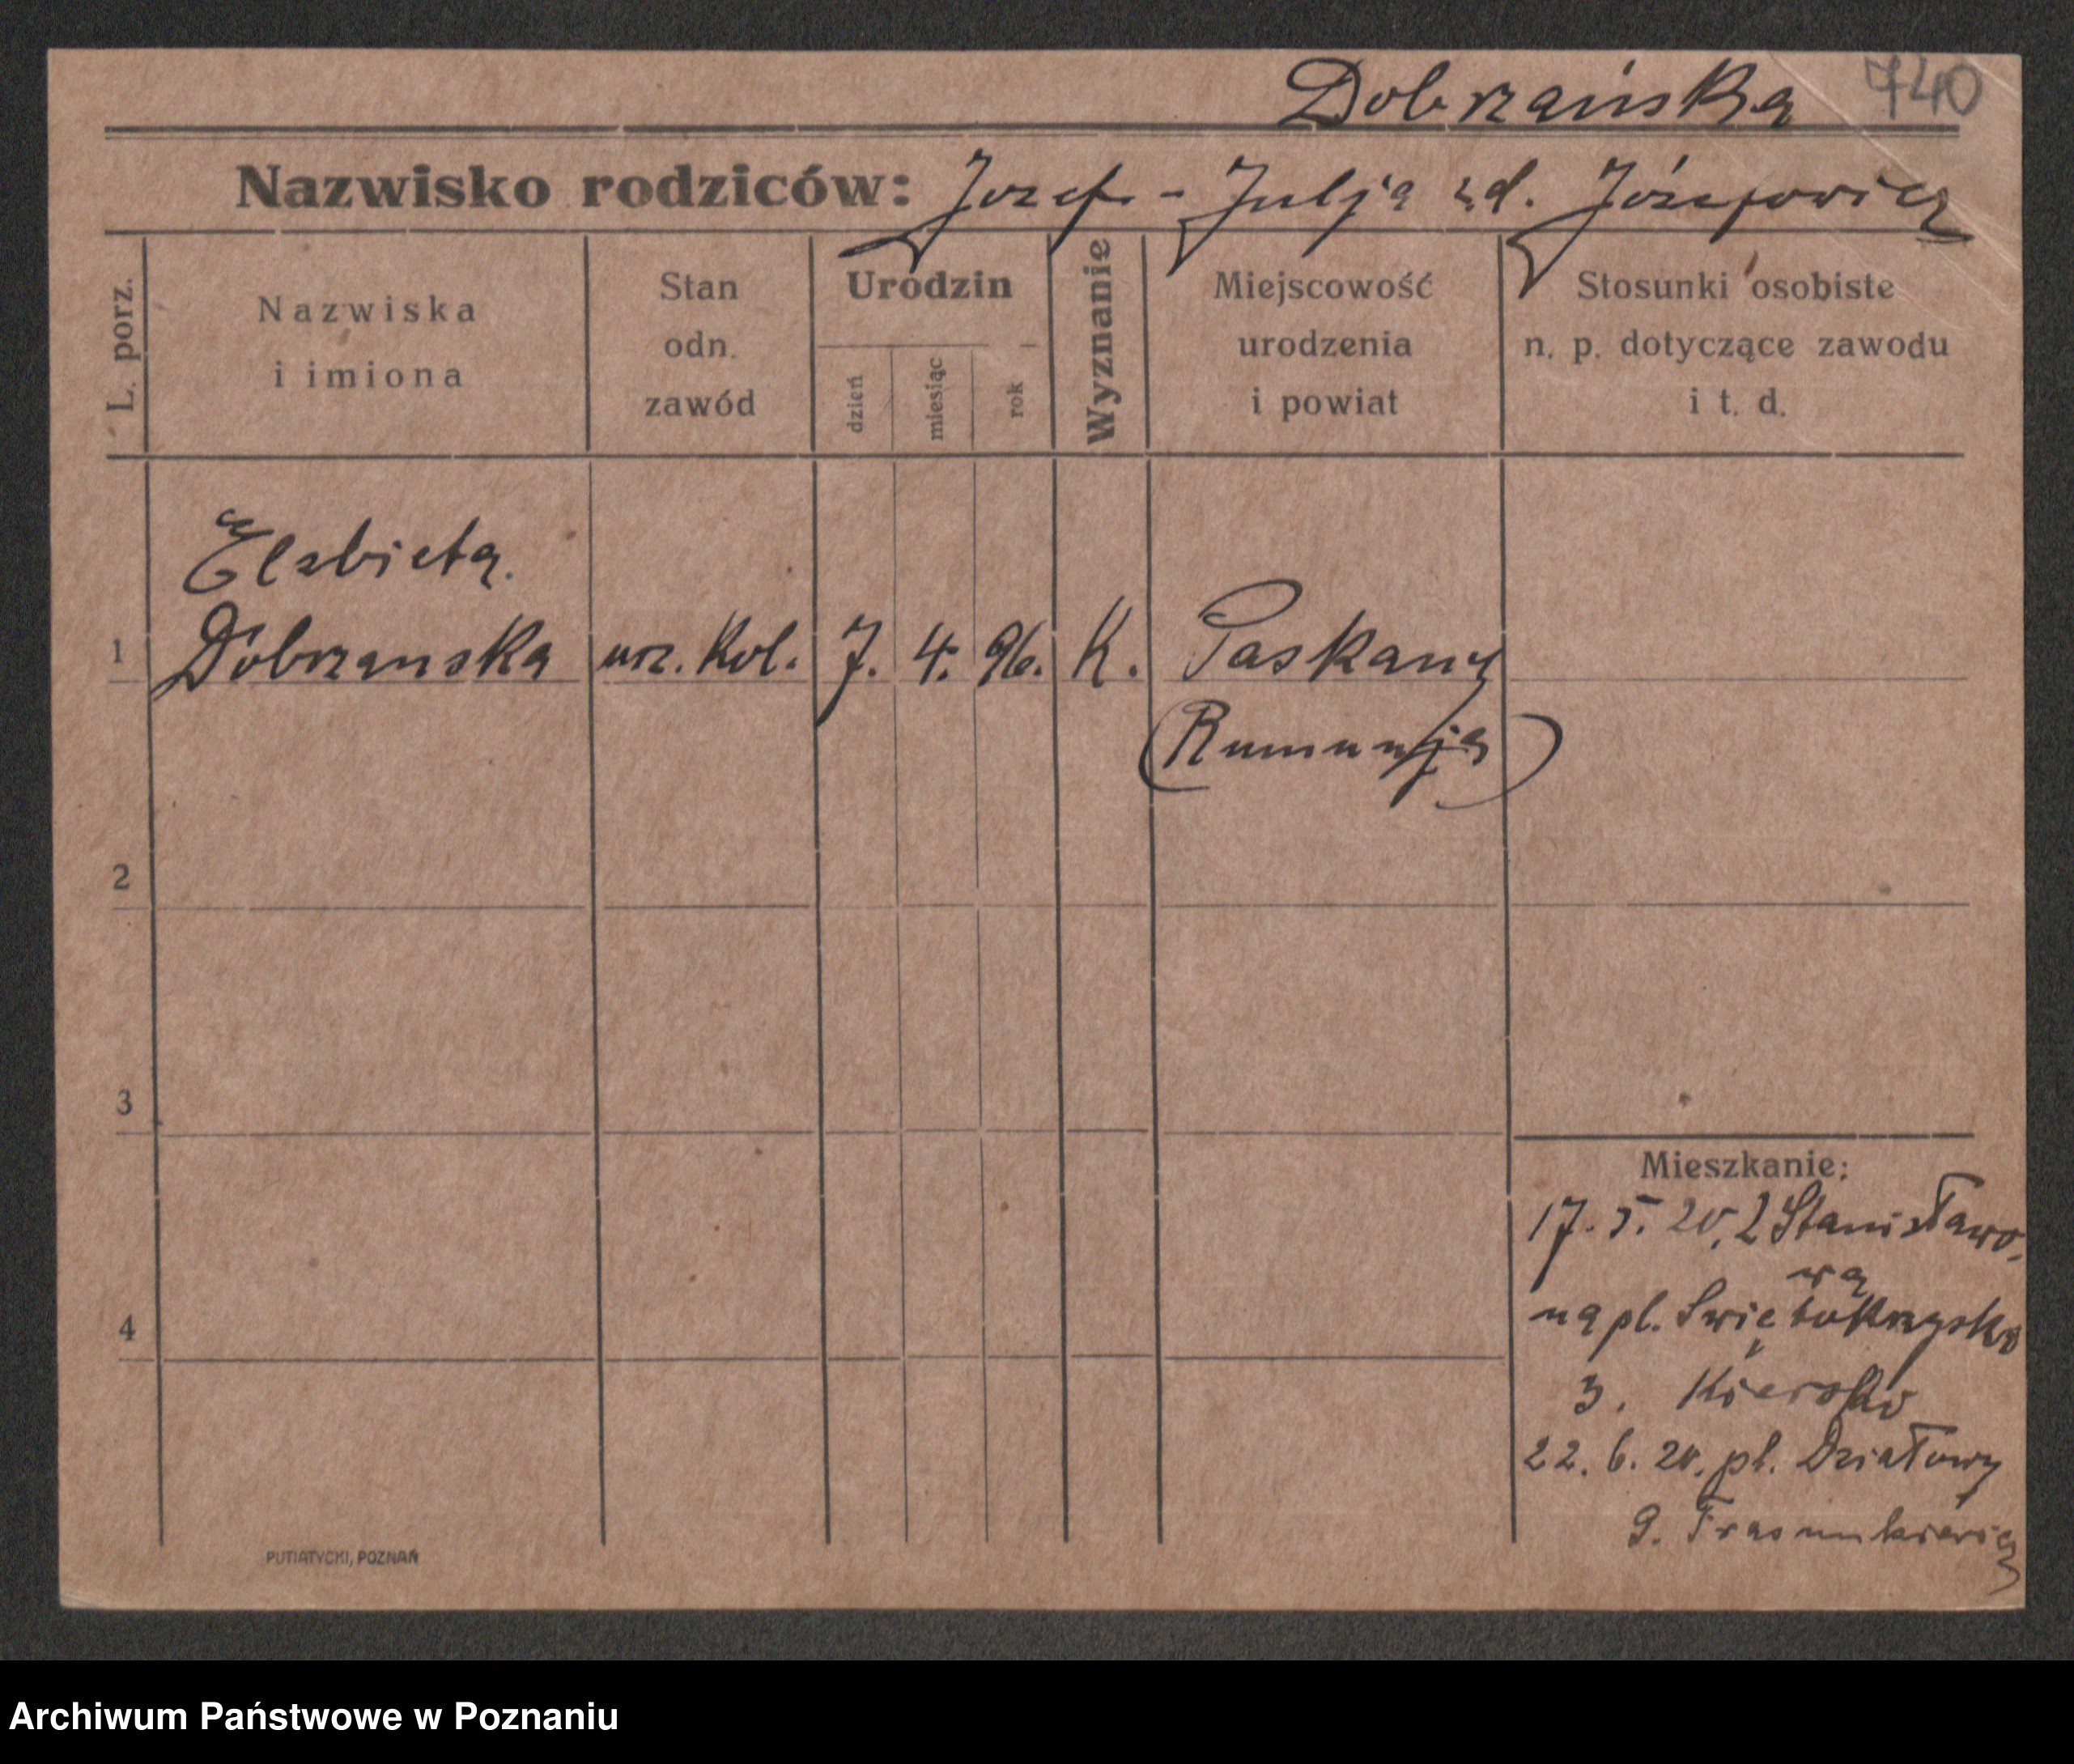 Dobrzańska 740
Nazwisko rodziców: Jozef - Julja zd. Józefowicz
L. porz.
Nazwiska
i imiona
Stan
odn.
zawód
Urodzin
dzień
miesiąc
rok
Wyznanie
Miejscowość
urodzenia
i powiat
Stosunki osobiste
n. p. dotyczące zawodu
i t. d.
Elzbieta.
1 Dobrzanska urz. Kol. 7. 4. 96. K. Paskany
(Rumunja)
2
3
4
Mieszkanie:
17. 5. 20. Z Stanisławo-
wa
na pl. Swiętokrzysko
3.
22. 6. 20. pl. Działowy
9.
PUTIATYCKI, POZNAŃ
Archiwum Państwowe w Poznaniu